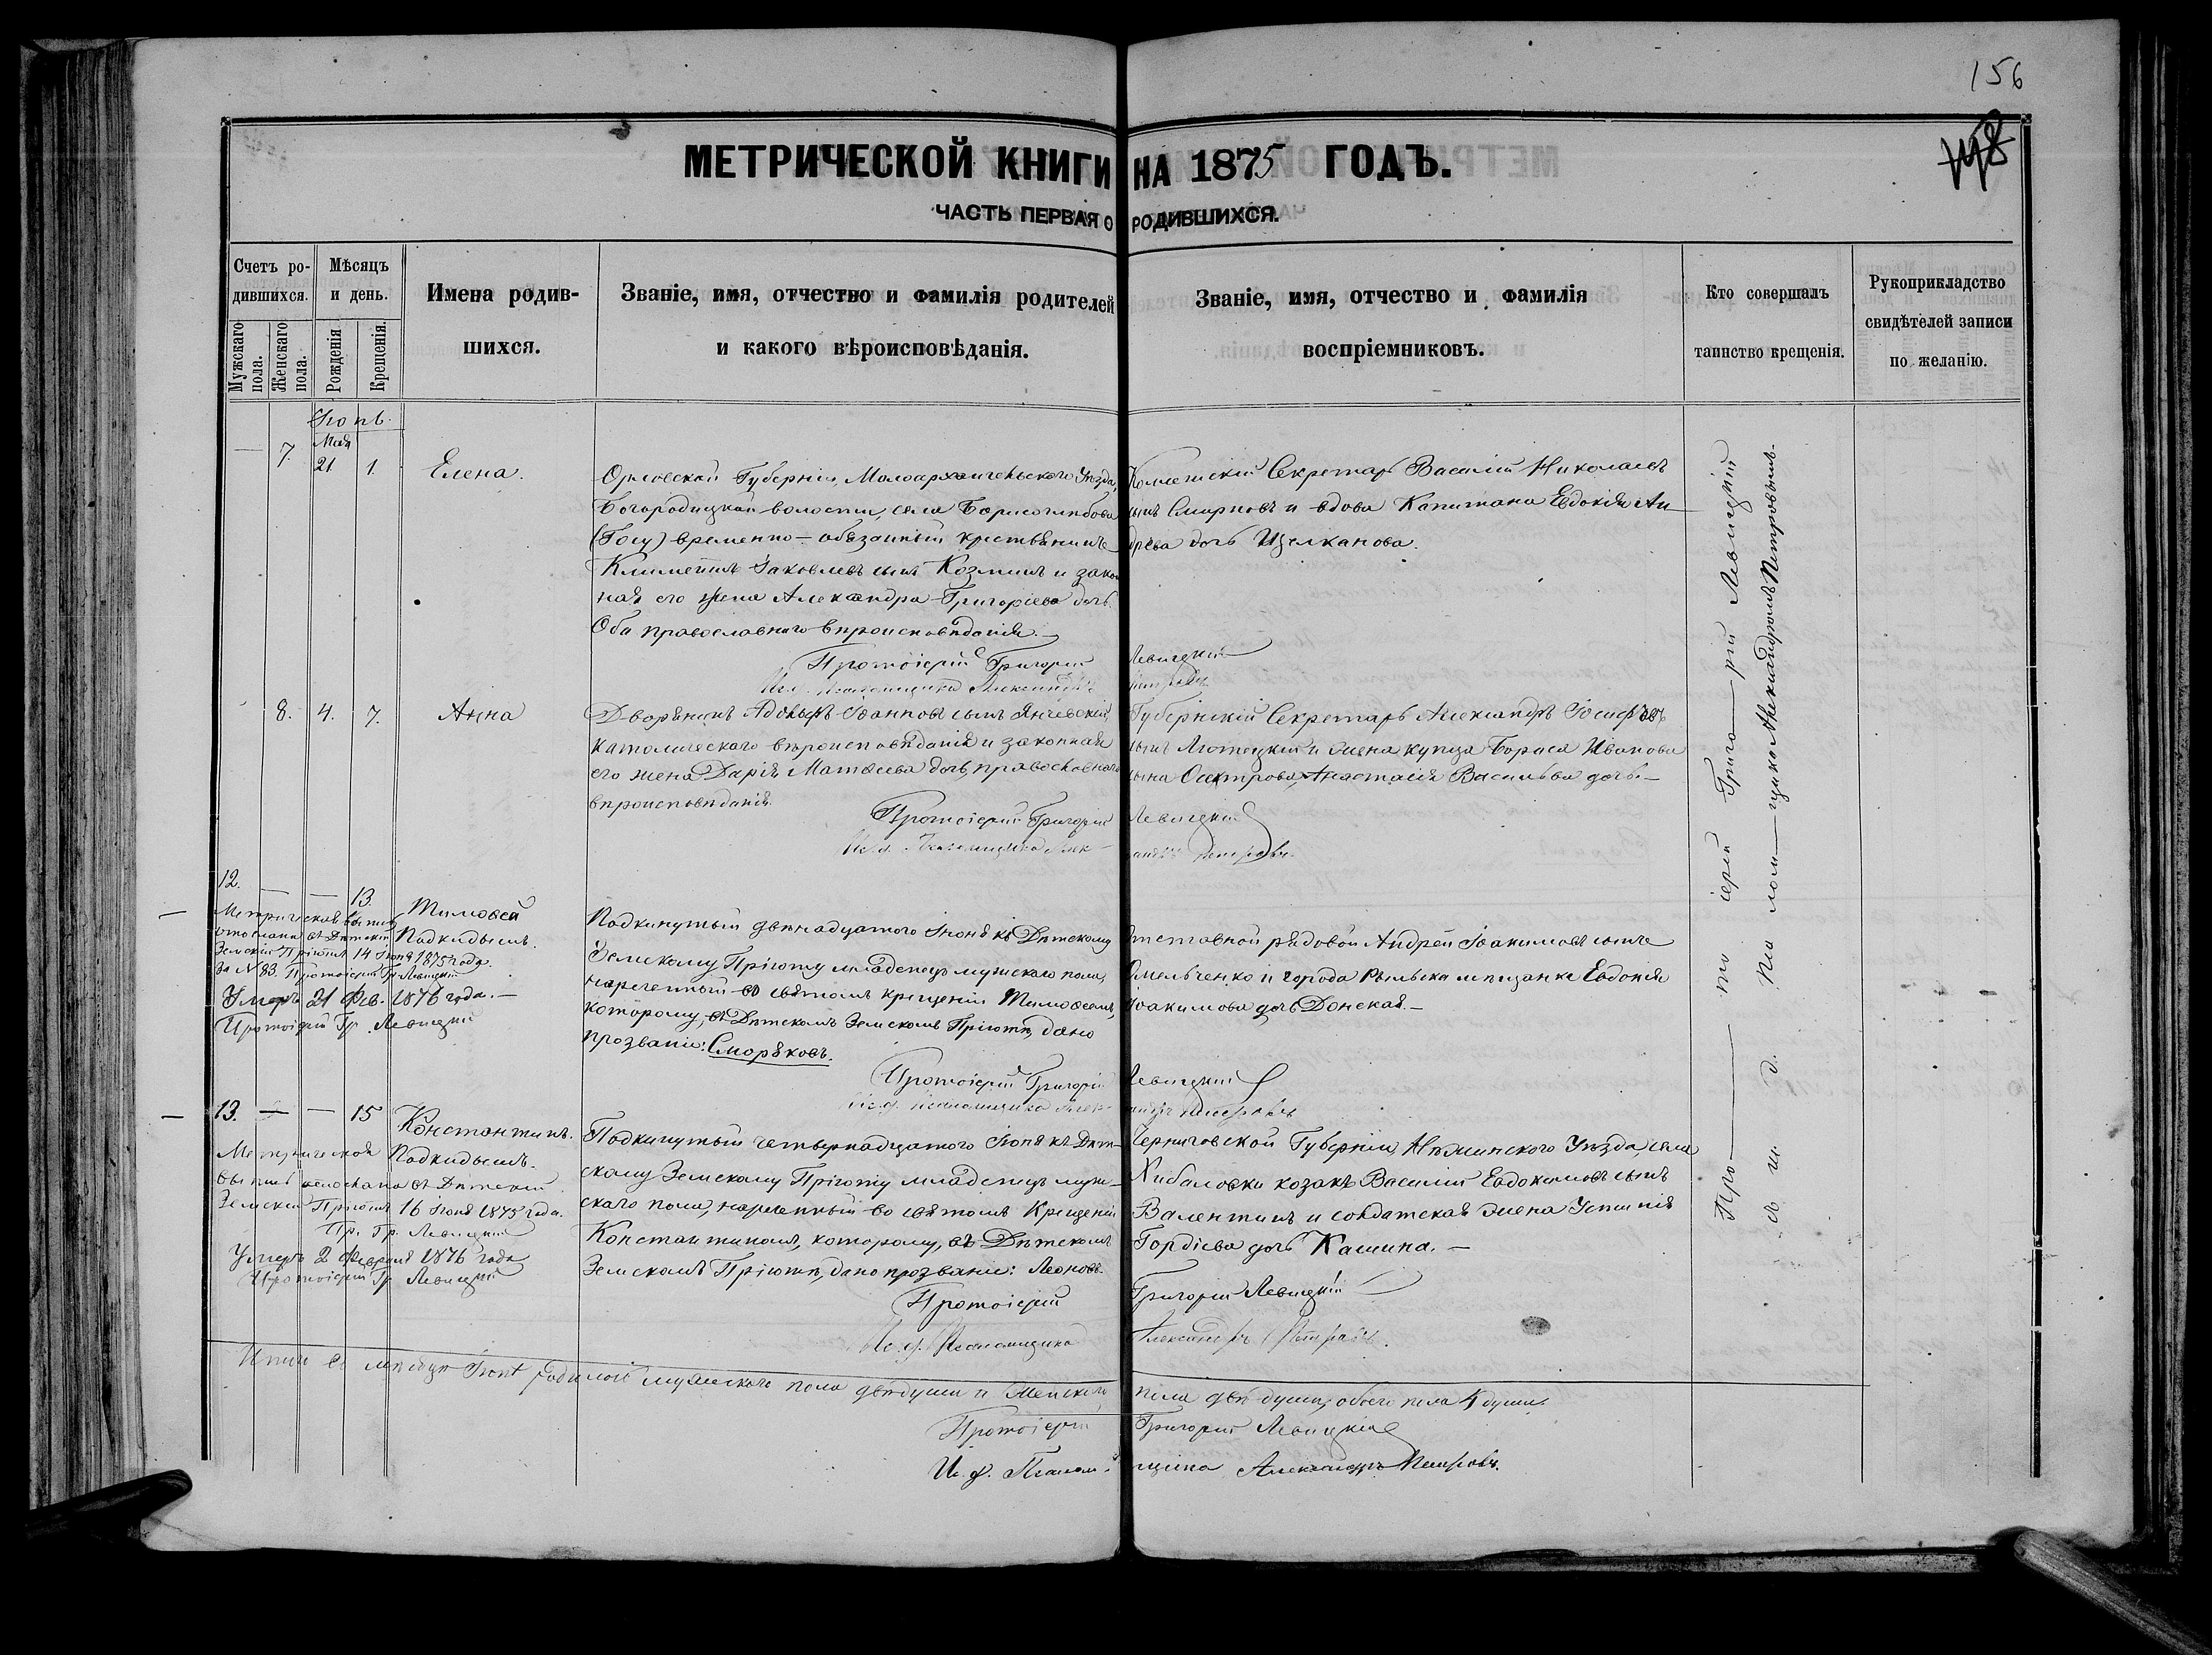 156
МЕТРИЧЕСКОЙ КНИГИ НА 1875 ГОДЪ.
ЧАСТЬ ПЕРВАЯ О РОДИВШИХСЯ.
Счетъ родившихся.
Мужскаго пола.
Женскаго пола.
Мѣсяцъ и день.
Рожденія
Крещенія.
Имена родив-
шихся.
Званіе, имя, отчество и фамилія родителей
и какого вѣроисповѣданія.
Званіе, имя, отчество и фамилія
воспріемниковъ.
Кто совершалъ
таинство крещенія.
Рукоприкладство
свидѣтелей записи
по желанію.
Іюнь.
Мая
— 7. 21. 1. Елена.
Орловской Губерніи, Малоархангельскаго Уѣзда,
Богородицкой волости, села Борисоглѣбова
временно-обязанный крестьянинъ
Климентъ Іаковлевъ сынъ Козминъ и закон
ная его жена Александра Григоріева дочь.
Оба православнаго вѣроисповѣданія.
Протоіерей Григорій Левицкій
Ис. д. Псаломщика Александръ Петровъ
Секретарь Василій Николаевъ
сынъ Смирновъ и вдова Капитана Евдокія Ан-
дреева дочь Щелканова.
8. 4. 7. Анна
Дворянинъ Адольфъ Іоанновъ сынъ Янчевскій,
католическаго вѣроисповѣданія и законная
его жена Дарія Матѳеева дочь, православнаго
вѣроисповѣданія.
Протоіерей Григорій Левицкій
Ис. д. Псаломщика Александръ Петровъ.
Губернскій Секретарь Александръ Іосифовъ
сынъ Лютецкій и жена купца Бориса Иванова
сына Осетрова, Анастасія Васильева дочь.—
12. — — 13. Тимоѳей
Подкидышъ.
Метрическая выпись
отослана въ Дѣтскій
Земскій Пріютъ 14 Іюня 1875 года.
За № 83. Протоіерей Гр. Левицкій
Умеръ 21 Фев. 1876 года.—
Протоіерей Гр. Левицкій
Подкинутый двѣнадцатаго Іюня къ Дѣтскому
Земскому Пріюту младенецъ мужскаго пола,
нареченный во святомъ крещеніи Тимоѳеемъ,
которому, въ Дѣтскомъ Земскомъ Пріютѣ, дано
прозваніе: Сморяковъ.
Протоіерей Григорій Левицкій
Ис. д. Псаломщика Александръ Петровъ
Отставной рядовой Андрей Іоакимовъ сынъ
Омельченко и города Рыльска мѣщанка Евдокія
Іоакимова дочь Донская.—
13. — — 15 Константинъ.
Подкидышъ.
Метрическая
выпись отослана въ Дѣтскій
Земскій Пріютъ 16 Іюня 1875 года.
Пр. Гр. Левицкій
Умеръ 2 Февраля 1876 года
Протоіерей Гр. Левицкій
Подкинутый четырнадцатаго Іюня къ Дѣт-
скому Земскому Пріюту младенецъ муж-
скаго пола, нареченный во святомъ Крещеніи
Константиномъ, которому, въ Дѣтскомъ
Земскомъ Пріютѣ, дано прозваніе: Леоновъ.
Протоіерей Григорій Левицкій
Ис. д. Псаломщика Александръ Петровъ.
Черниговской Губерніи, Нѣжинскаго Уѣзда, села
Хибаловки козакъ Василій Евдокимовъ сынъ
Валентинъ и солдатская жена Устинія
Гордіева дочь Кашина.—
Протоіерей Григорій Левицкій
съ и. д. Псаломщика Александромъ Петровымъ.
Итого въ мѣсяцѣ Іюнѣ родилось мужскаго пола двѣ души и женскаго пола двѣ души, обоего пола 4 души.
Протоіерей Григорій Левицкій
И. д. Псаломщика Александръ Петровъ.